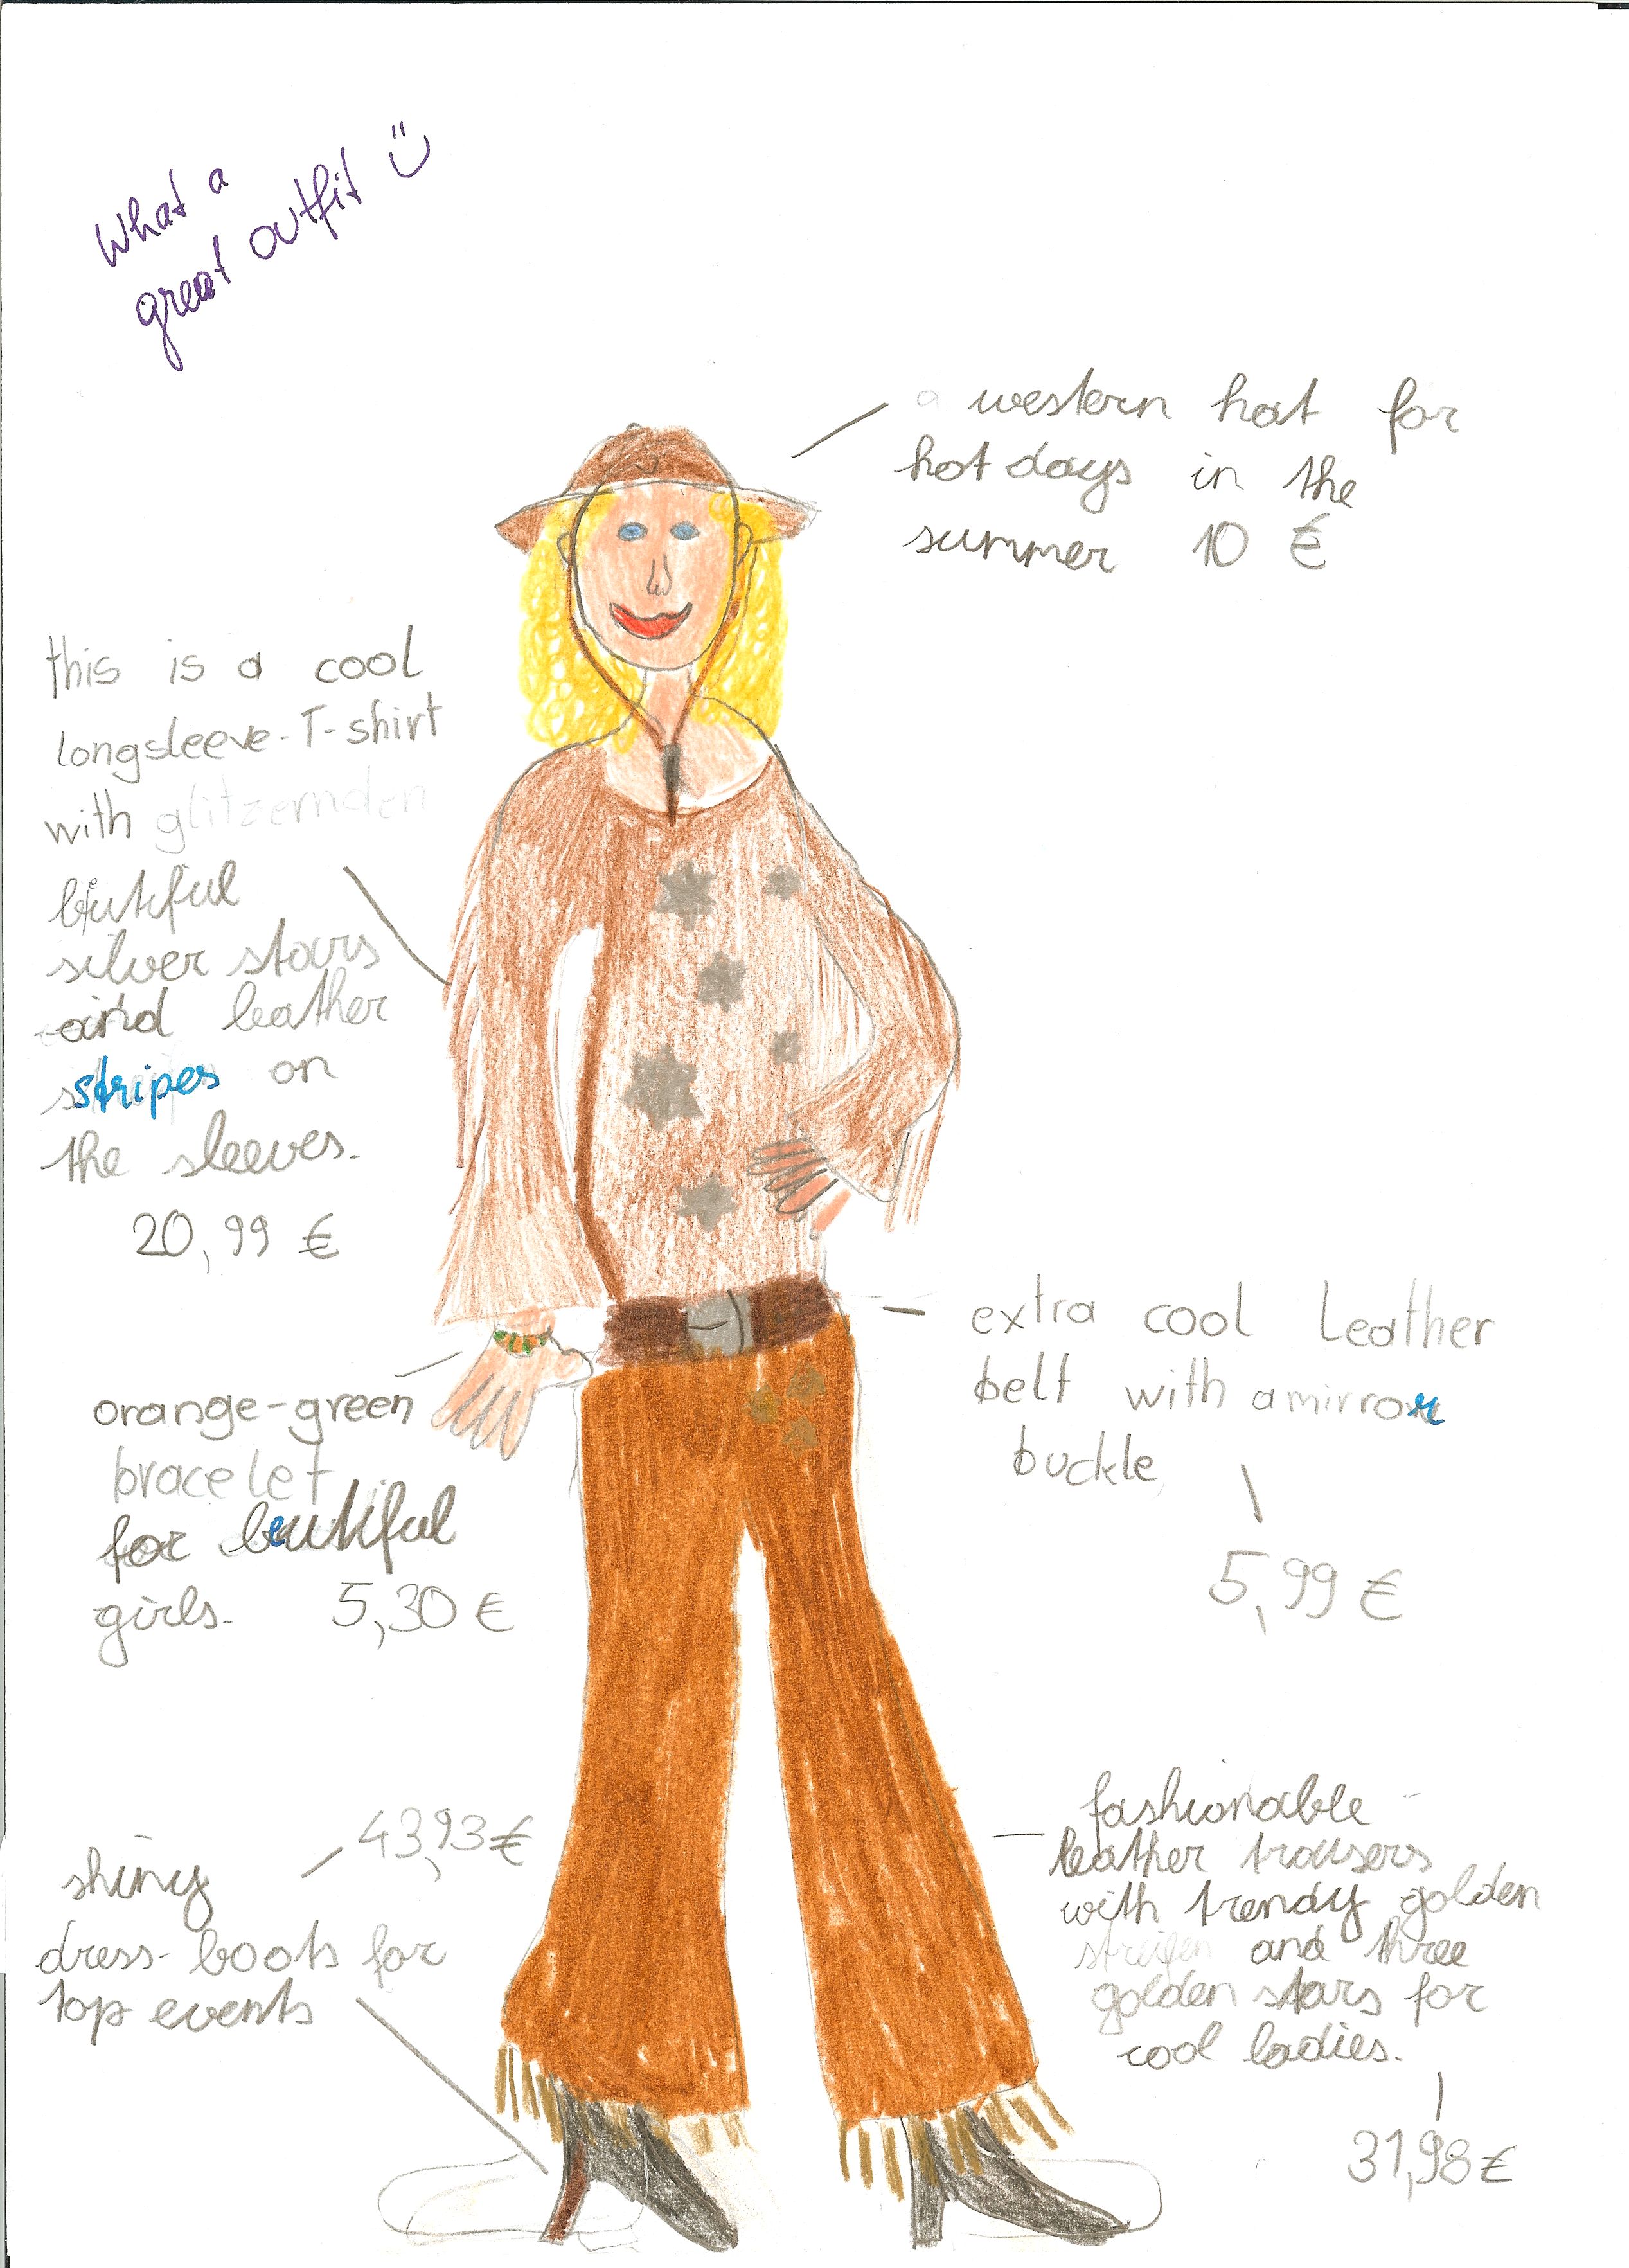 What a
great outfit ü
a western hat for
hot days in the
summer 10 €
this is a cool
longsleeve-T-shirt
with glitzernden
silver stars
and leather
stripes on
the sleeves.
20,99 €
extra cool Leather
belt with a mirror
buckle
5,99 €
orange-green
bracelet
for beutiful
girls. 5,30 €
43,93 €
shiny
dress-boots for
top events
fashionable
leather trousers
with trendy golden
streifen and three
golden stars for
cool ladies.
31,98 €